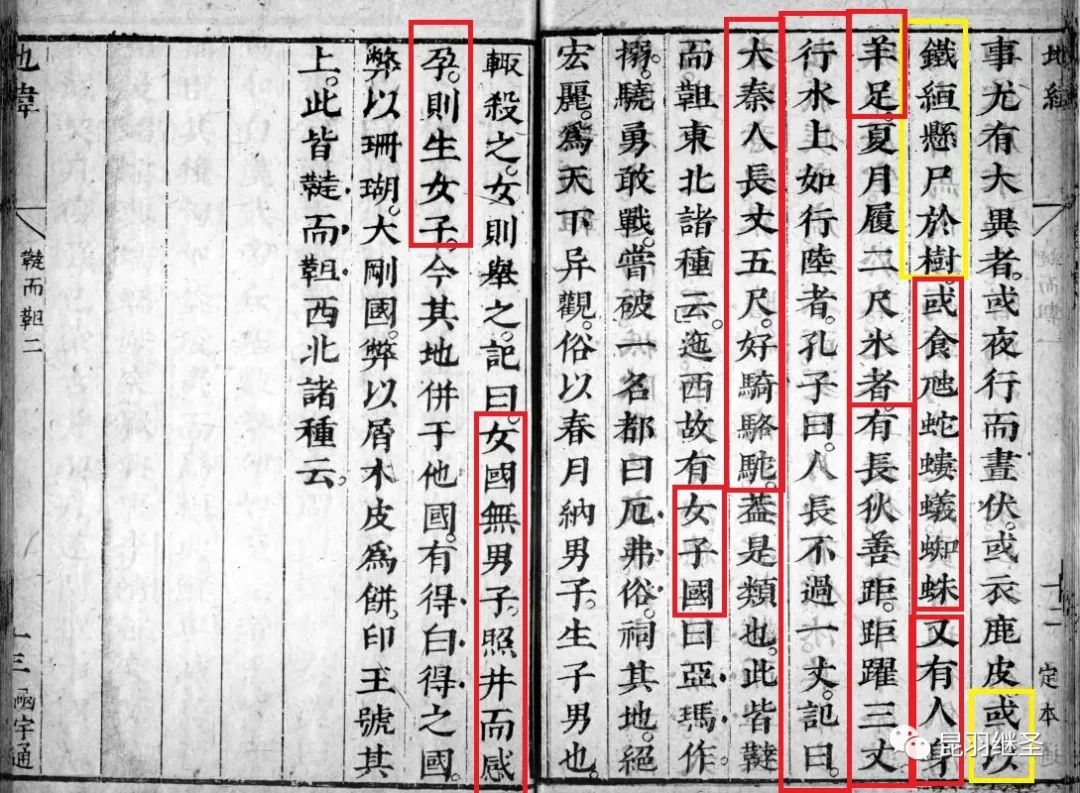 地緯
十二
定本
事尤有大異者。或夜行而晝伏。或衣鹿皮或以
鐵絙懸尸於樹。或食虺蛇螻蟻蜘蛛又有人身
羊足。夏月履二尺氷者。有長狄善距。距躍三丈
行水上如行陸者。孔子曰。人長不過一丈。記曰。
大秦人長丈五尺。好騎駱駝。蓋是類也。此皆韃
而靼東北諸種云。迤西故有女子國曰亞瑪作
搦。驍勇敢戰。嘗破一名都曰厄弗俗。祠其地。絕
宏麗。爲天下异觀。俗以春月納男子。生子男也。
輙殺之。女則舉之。記曰。女國無男子。照井而感
孕。則生女子。今其地併于他國。有得白得之國。
弊以珊瑚。大剛國。弊以屑木皮爲餅。印王號其
上。此皆韃而靼西北諸種云。
地緯
韃而靼二
十三
函宇通
昆羽继圣